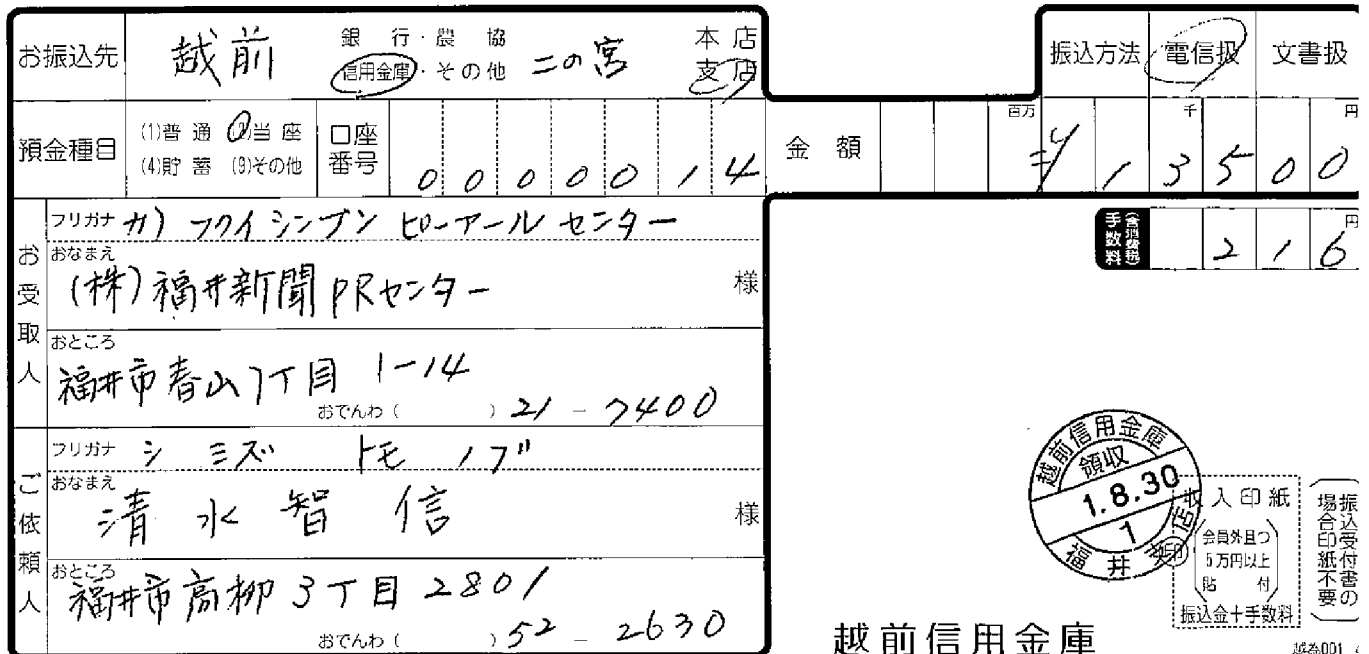 お振込先 越前 銀行・農協 信用金庫・その他 二の宮 本店 支店
振込方法 電信扱 文書扱
預金種目 (1)普通 (2)当座 (4)貯蓄 (9)その他 口座番号 0000014
金額 百万 千 円 ¥13500
手数料 (含消費税) 216 円
お受取人
フリガナ カ) フクイシンブン ピーアールセンター
おなまえ (株)福井新聞PRセンター 様
おところ 福井市春山1丁目 1-14
おでんわ ( ) 21-7400
ご依頼人
フリガナ シミズ トモノブ
おなまえ 清水智信 様
おところ 福井市高柳3丁目2801
おでんわ ( ) 52-2630
越前信用金庫
領収
1.8.30
1
福井支店
収入印紙
会員外且つ
5万円以上
貼付
振込金+手数料
振込受付書の
場合印紙不要
越前信用金庫